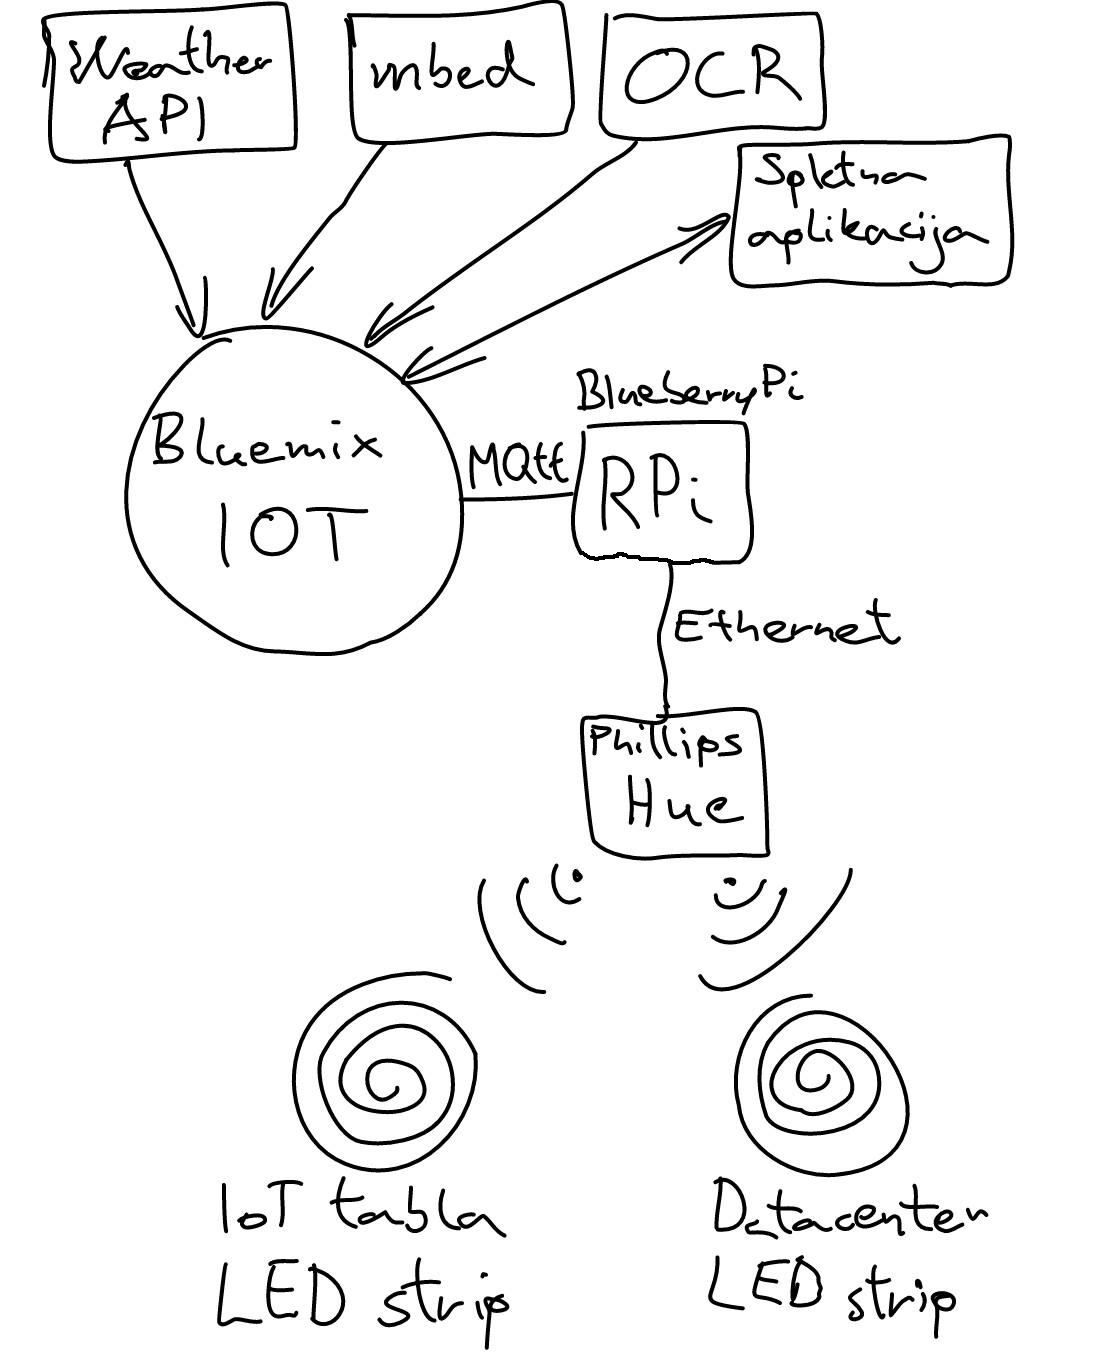 Weather
API
mbed
OCR
Spletna
aplikacija
BlueberryPi
Bluemix
IOT
MQtt
RPi
Ethernet
Phillips
Hue
IoT tabla
LED strip
Datacenter
LED strip